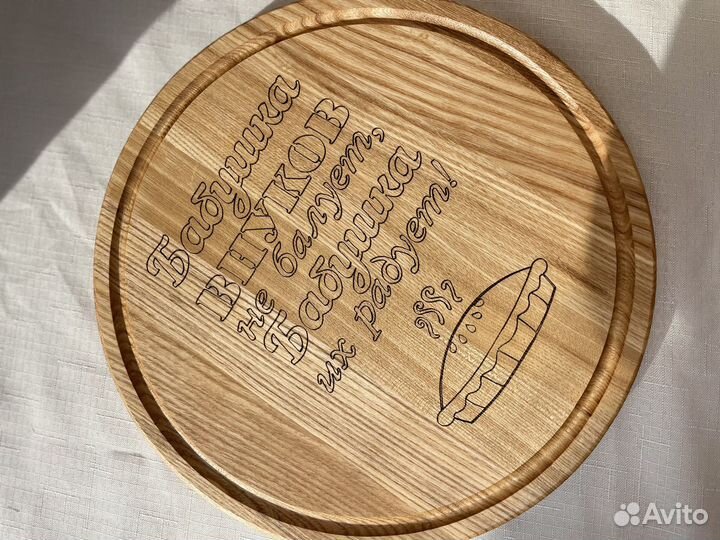 Бабушка
ВНУКОВ
не балует,
Бабушка
их радует!
Avito